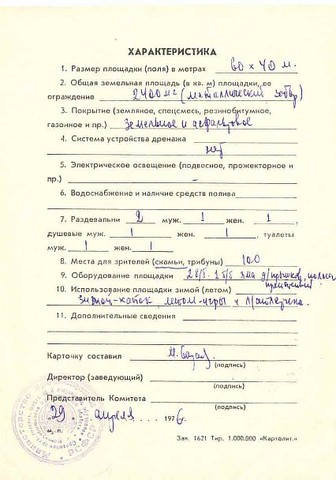 ХАРАКТЕРИСТИКА
1. Размер площадки (поля) в метрах 60 × 40 м.
2. Общая земельная площадь (в кв. м) площадки, ее
ограждение 2400 м² (металлический забор)
3. Покрытие (земляное, спецсмесь, резинобитумное,
газонное и пр.) земельное и асфальтовое
4. Система устройства дренажа
нет
5. Электрическое освещение (подвесное, прожекторное и
пр.) –
6. Водоснабжение и наличие средств полива
7. Раздевальни 2 муж. 1 жен. 1,
душевые муж. 1 жен. 1, туалеты
муж. 1 жен. 1
8. Места для зрителей (скамьи, трибуны) 100
9. Оборудование площадки
10. Использование площадки зимой (летом)
зимой-каток, летом-игры и
11. Дополнительные сведения
Карточку составил
(подпись)
Директор (заведующий)
(подпись)
Представитель Комитета
(подпись)
29 апреля 1976 г.
м. п.
РСФСР
Зак. 1621 Тир. 1.000.000 «Картолит.»